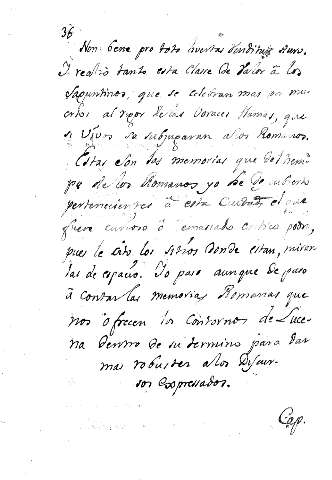 36
Non bene pro toto libertas venditur auro.
I realzó tanto esta clase de valor á los
Saguntinos, que se celebran mas por mu-
ertos al rigor de las voraces llamas, que
si vivos se subjugaran á los Romanos.
Estas son las memorias que del tiem-
po de los Romanos yo he descubierto
pertenecientes á esta Ciudad, el que
fuere curioso ó emassado critico podrá,
pues le cito los sitios donde estan, miror
las de espacio. Io paso aunque de paso
á contar las memorias Romanas que
nos ofrecen los contornos de Luce-
na dentro de su termino para dar
mas robustes a los Discur-
sos expressados.
Cap.